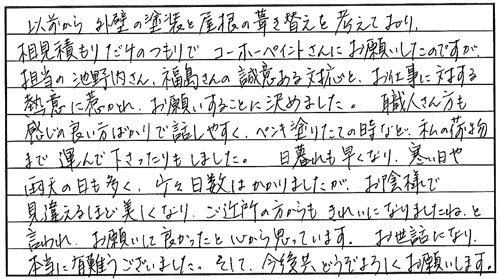 以前から 外壁の塗装と屋根の葺き替えを 考えており、
相見積もりだけのつもりで コーホーペイントさんに お願いしたのですが、
担当の 池野内さん、福島さんの 誠意ある対応と、お仕事に対する
熱意に惹かれ、お願いすることに決めました。 職人さん方も
感じの良い方ばかりで 話しやすく、ペンキ塗りたての時など、私の荷物
まで 運んで下さったりもしました。 日暮れも早くなり、寒い日や
雨天の日も多く、少々日数はかかりましたが、お陰様で
見違えるほど美しくなり、ご近所の方からも きれいになりましたね、と
言われ、お願いして良かったと 心から思っています。 お世話になり、
本当に有難うございました。そして、今後共 どうぞよろしくお願いします。